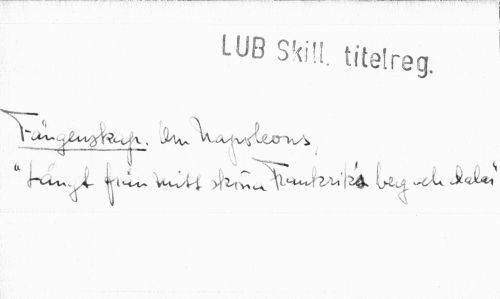 LUB Skill. titelreg.
Fångenskap. Om Napoleons,
"Långt från mitt sköna Frankrikes berg och dalar"